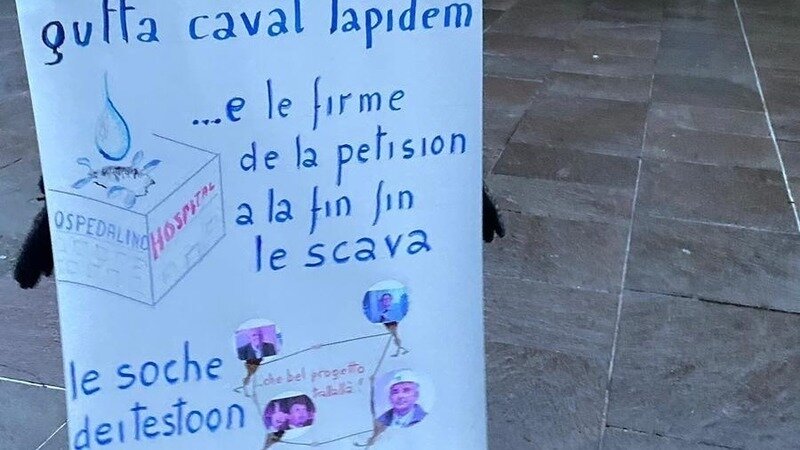 gutta caval lapidem
...e le firme
de la petision
a la fin fin
le scava
OSPEDALINO
HOSPITAL
le soche
dei testoon
...che bel progetto
tallallà!